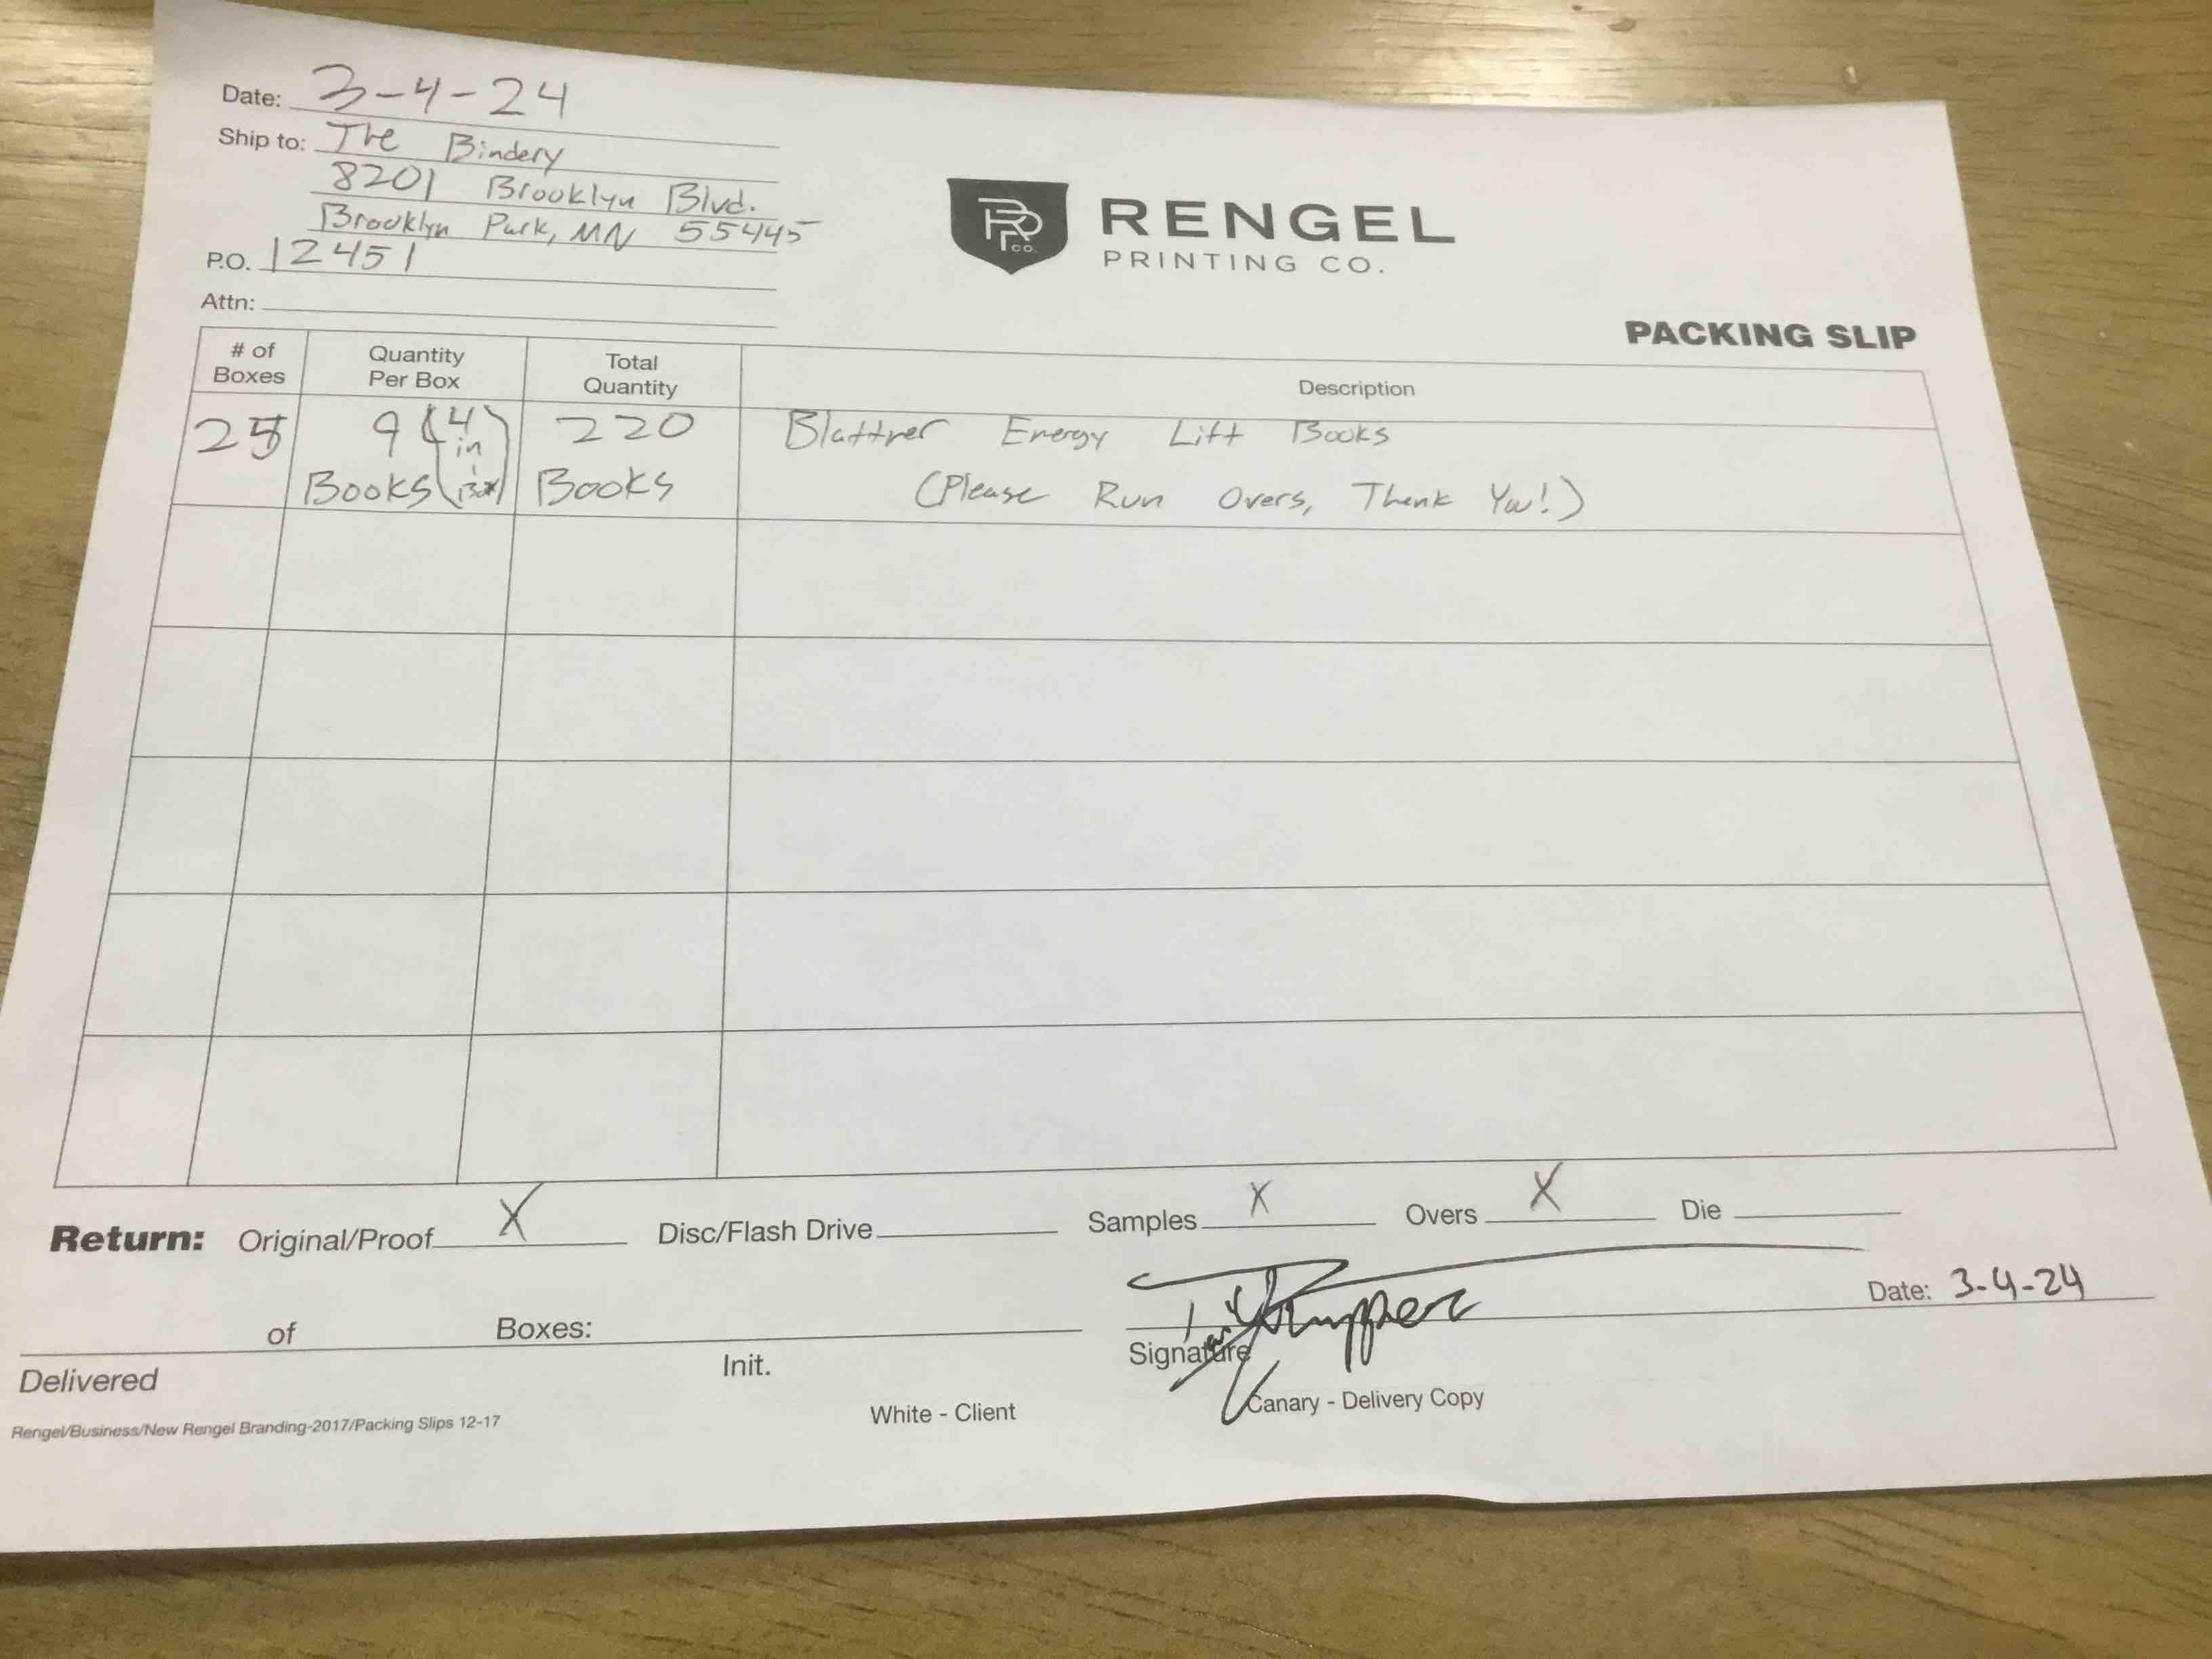 Date: 3-4-24
Ship to: The Bindery
8201 Brooklyn Blvd.
Brooklyn Park, MN 55445
P.O. 12451
Attn:
RP CO.
RENGEL
PRINTING CO.
PACKING SLIP
# of Boxes Quantity Per Box Total Quantity Description
25 9 (4 in Box) 220 Blattner Energy Lift Books
Books Books (Please Run Overs, Thank You!)
Return: Original/Proof X Disc/Flash Drive Samples X Overs X Die
Date: 3-4-24
of Boxes:
Delivered Init. Signature
White - Client Canary - Delivery Copy
Rengel/Business/New Rengel Branding-2017/Packing Slips 12-17